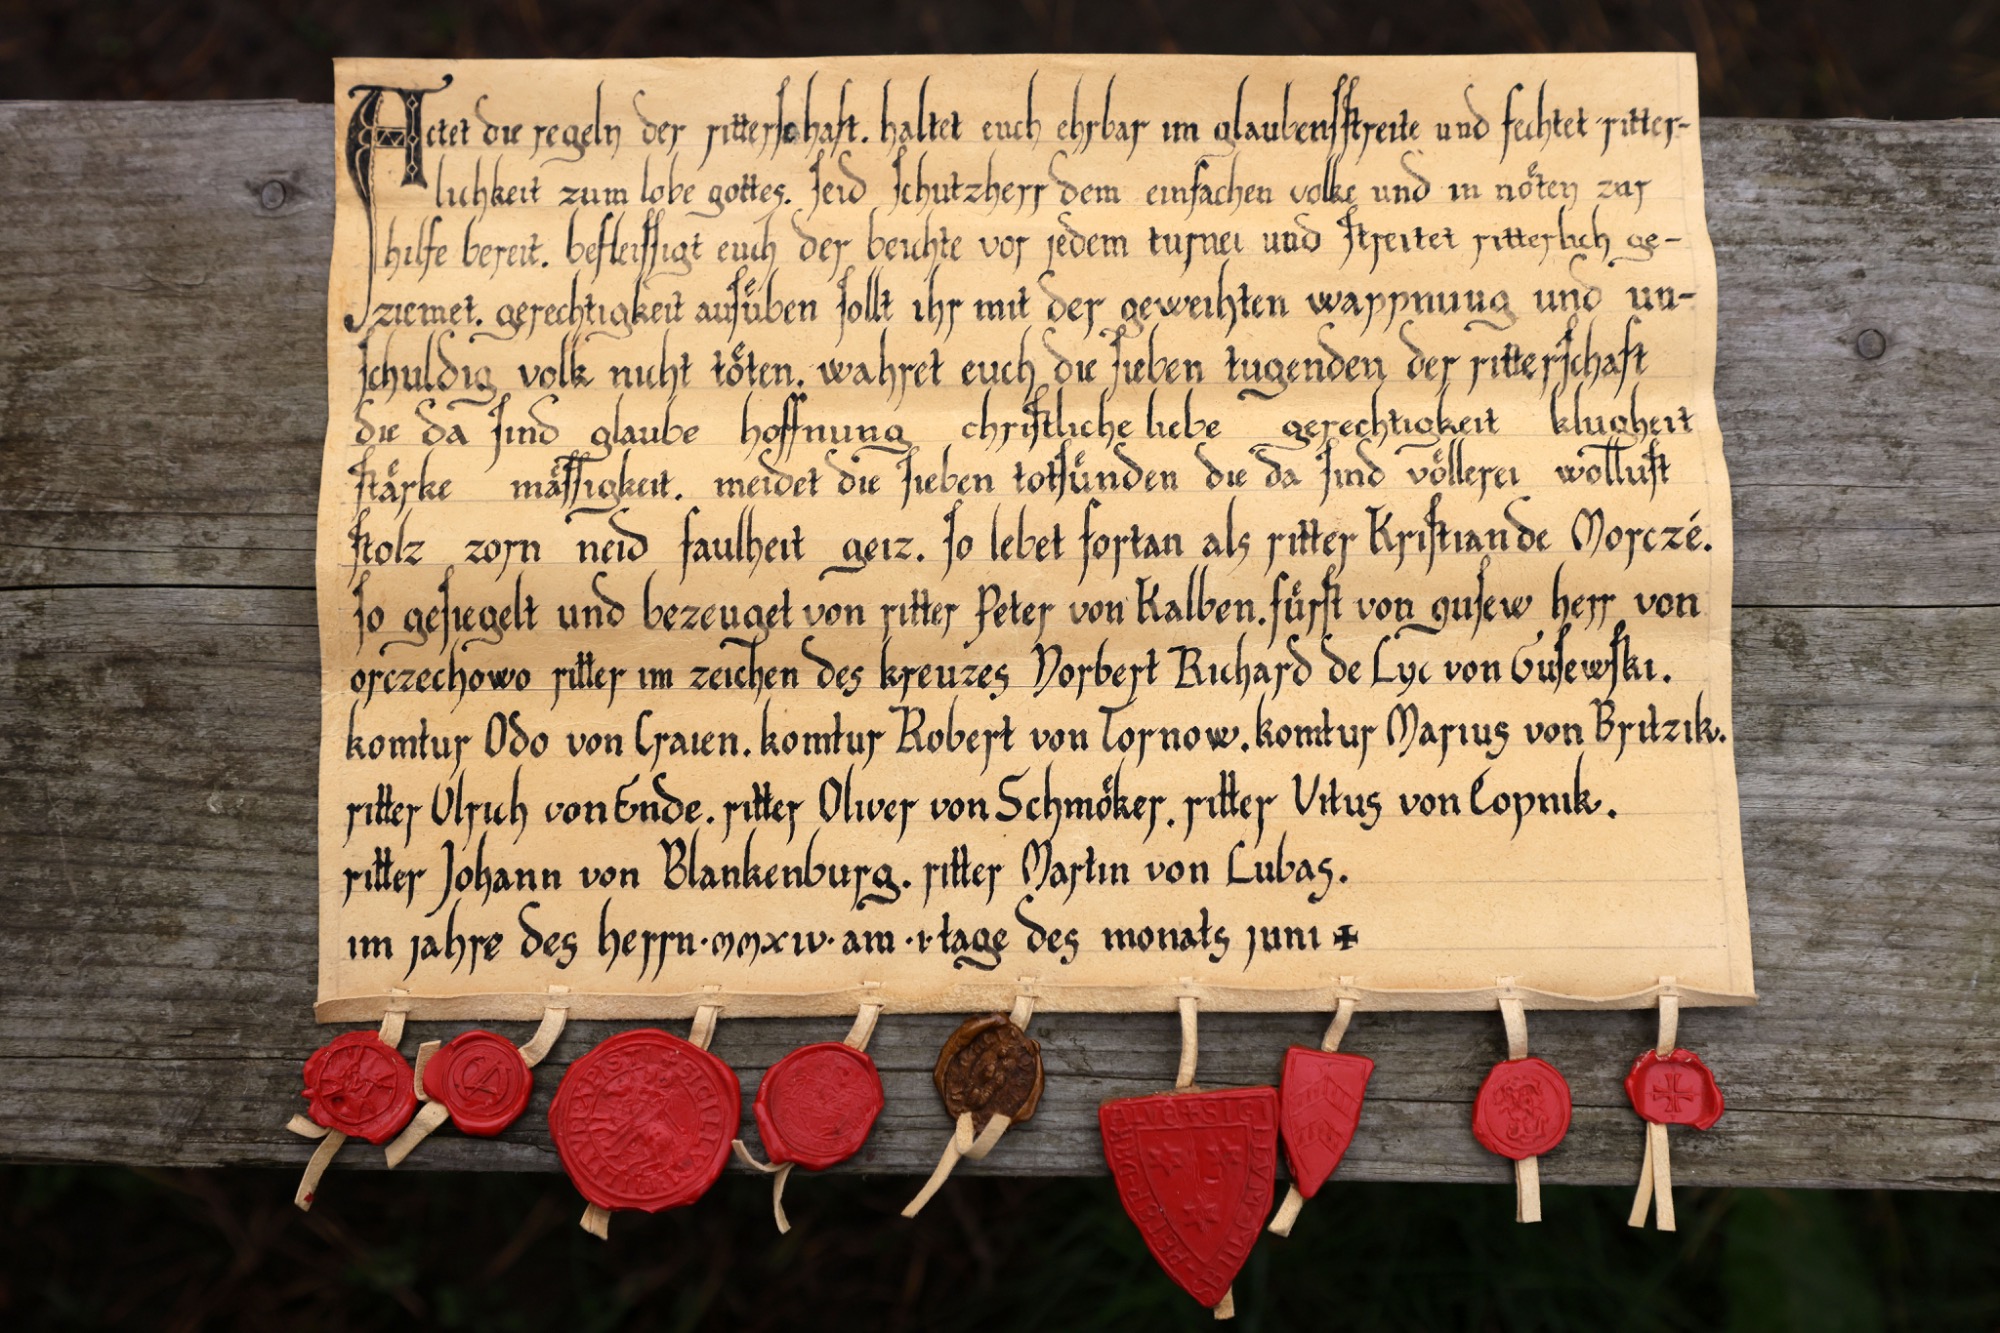 Actet die regeln der ritterschaft. haltet euch ehrbar im glaubensstreite und fechtet ritter-
lichkeit zum lobe gottes. seid schutzherr dem einfachen volke und in nöten zur
hilfe bereit. befleissigt euch der beichte vor jedem turnei und streitet ritterlich ge-
ziemet. gerechtigkeit ausüben sollt ihr mit der geweihten wappnung und un-
schuldig volk nicht töten. wahret euch die sieben tugenden der ritterschaft
die da sind glaube hoffnung christliche liebe gerechtigkeit klugheit
stärke mässigkeit. meidet die sieben totsünden die da sind völlerei wollust
stolz zorn neid faulheit geiz. so lebet fortan als ritter Kristian de Morczé.
so gesiegelt und bezeuget von ritter Peter von Kalben. fürst von gusew herr von
orczechowo ritter im zeichen des kreuzes Norbert Richard de Lyc von Gusewski.
komtur Odo von Craien. komtur Robert von Tornow. komtur Marius von Britzik.
ritter Ulrich von Ende. ritter Oliver von Schmöker. ritter Vitus von Copnik.
ritter Johann von Blankenburg. ritter Martin von Lubas.
im jahre des herrn·mmxiv·am·i·tage des monats juni ✠